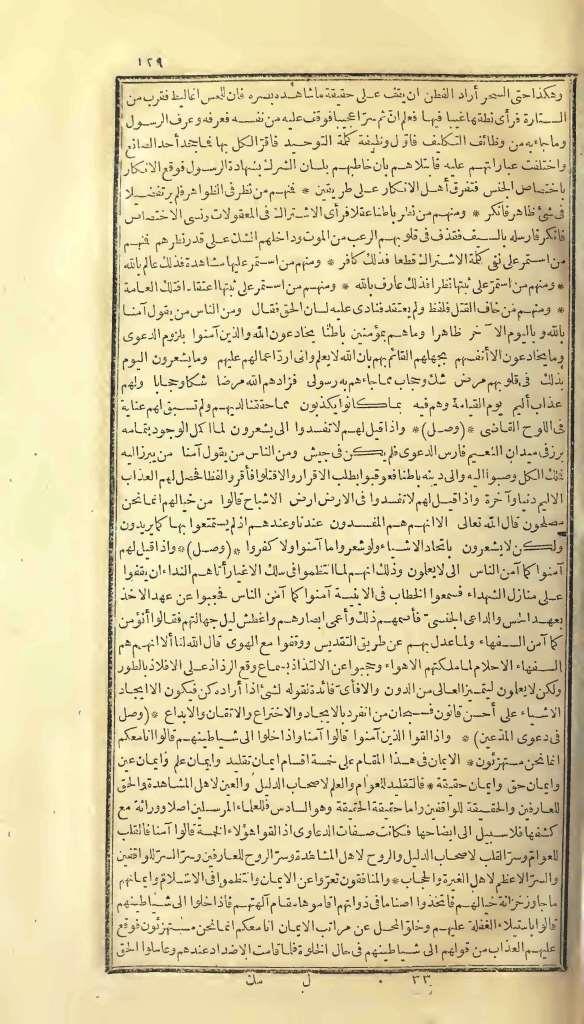 ١٢٩
وهكذا حتى السحر أراد الفطن ان يقف على حقيقة ما شاهده ببصره فان للحس أغاليط فقرب من
الستارة فرأى نطقها غيبا فيها فعلم ان ثم سرا عجيبا فوقف عليه من نفسه فعرفه وعرف الرسول
وما جاء به من وظائف التكليف فاول وظيفة كلمة التوحيد فاقر الكل بها فما جحد أحد الصانع
واختلفت عباراتهم عليه فابتلاهم بان خاطبهم بلسان الشرك بشهادة الرسول فوقع الانكار
باختصاص الجنس فتفرق أهل الانكار على طريقين * فمنهم من نظر فى الظواهر فلم ير تفضيلا
فى شئ ظاهر فانكر * ومنهم من نظر باطنا عقلا فرأى الاشتراك فى المعقولات ونسى الاختصاص
فانكر فارسله بالسيف فقذف فى قلوبهم الرعب من الموت وداخلهم الشك على قدر نظرهم فمنهم
من استمر على نفى كلمة الاشتراك قطعا فذلك كافر * ومنهم من استمر عليها مشاهدة فذلك عالم بالله
* ومنهم من استمر على ثبتها نظرا فذلك عارف بالله * ومنهم من استمر على ثبتها اعتقادا فذلك العامة
* ومنهم من خاف القتل فلفظ ولم يعتقد فنادى عليه لسان الحق فقال ومن الناس من يقول آمنا
بالله وباليوم الآخر ظاهرا وما هم بمؤمنين باطنا يخادعون الله والذين آمنوا بلزوم الدعوى
وما يخادعون الا أنفسهم بجهلهم القائم بهم بان الله لا يعلم وانى اردّ اعمالهم عليهم وما يشعرون اليوم
بذلك فى قلوبهم مرض شك وحجاب مما جاءهم به رسولى فزادهم الله مرضا شكا وحجابا ولهم
عذاب أليم يوم القيامة وهم فيه بما كانوا يكذبون مما حققنا لديهم ولم تسبق لهم عناية
فى اللوح القاضى * (وصل) * واذا قيل لهم لا تفسدوا الى يشعرون لما اكل الوجود بتمامه
برز فى ميدان النعيم فارس الدعوى فلم يكن فى جيش ومن الناس من يقول آمنا من يبرز اليه
فذلك الكل وصبوا اليه والى دينه باطنا فعوقبوا بطلب الاقرار والاقتلوا فأقروا لفظا فحصل لهم العذاب
الاليم دنيا وآخرة واذا قيل لهم لا تفسدوا فى الارض ارض الاشباح قالوا من خيالهم انما نحن
مصلحون قال الله تعالى الا انهم هم المفسدون عندنا وعندهم اذ لم يستمتعوا بها كما يريدون
ولكن لا يشعرون باتحاد الاشياء ولو شعروا ما آمنوا ولا كفروا * (وصل) * واذا قيل لهم
آمنوا كما آمن الناس الى لا يعلمون وذلك انهم لما انتظموا فى سلك الاغيار أتاهم النداء ان يقفوا
على منازل الشهداء فسمعوا الخطاب فى الابنية آمنوا كما آمن الناس فحجبوا عن عهد الاخذ
بعهد الحس والداعى الجنسى فأصمهم ذلك وأعمى ابصارهم واغطش ليل جهالتهم فقالوا أنؤمن
كما آمن السفهاء ولما عدل بهم عن طريق التقديس ووقفوا مع الهوى قال الله لنا ألا انهم هم
السفهاء الاحلام لما ملكتهم الاهواء وحجبوا عن الالتذاذ بسماع وقع الرذاذ على الافلاذ بالطور
ولكن لا يعلمون ليتميز العالى من الدون والافأى فائدة لقوله لشئ اذا أراده كن فيكون الا ايجاد
الاشياء على أحسن قانون فسبحان من انفرد بالايجاد والاختراع والاتقان والابداع * (وصل
فى دعوى المدّعين) * واذا لقوا الذين آمنوا قالوا آمنا واذا خلوا الى شياطينهم قالوا انا معكم
انما نحن مستهزئون * الايمان فى هذا المقام على خمسة اقسام ايمان تقليد وايمان علم وايمان عين
وايمان حق وايمان حقيقة * فالتقليد للعوام والعلم لاصحاب الدليل والعين لاهل المشاهدة والحق
للعارفين والحقيقة للواقفين واما حقيقة الحقيقة وهو السادس فللعلماء المرسلين اصلا ووراثة مع
كشفها فلا سبيل الى ايضاحها فكانت صفات الدعاوى اذا لقوا هؤلاء الخمسة قالوا آمنا فالقلب
للعوام وسرّ القلب لاصحاب الدليل والروح لاهل المشاهدة وسرّ الروح للعارفين وسرّ السرّ للواقفين
والسرّ الاعظم لاهل الغيرة والحجاب * والمنافقون تعرّوا عن الايمان وانتظموا فى الاسلام وايمانهم
ما جاوز خزانة خيالهم فاتخذوا اصناما فى ذواتهم اقاموها مقام آلهتهم فاذا خلوا الى شياطينهم
قالوا باستيلاء الغفلة عليهم وخلو المحل عن مراتب الايمان انا معكم انما نحن مستهزئون فوقع
عليهم العذاب من قولهم الى شياطينهم فى حال الخلوة فلما قامت الاضداد عندهم وعاملوا الحق
٣٣ ل مك